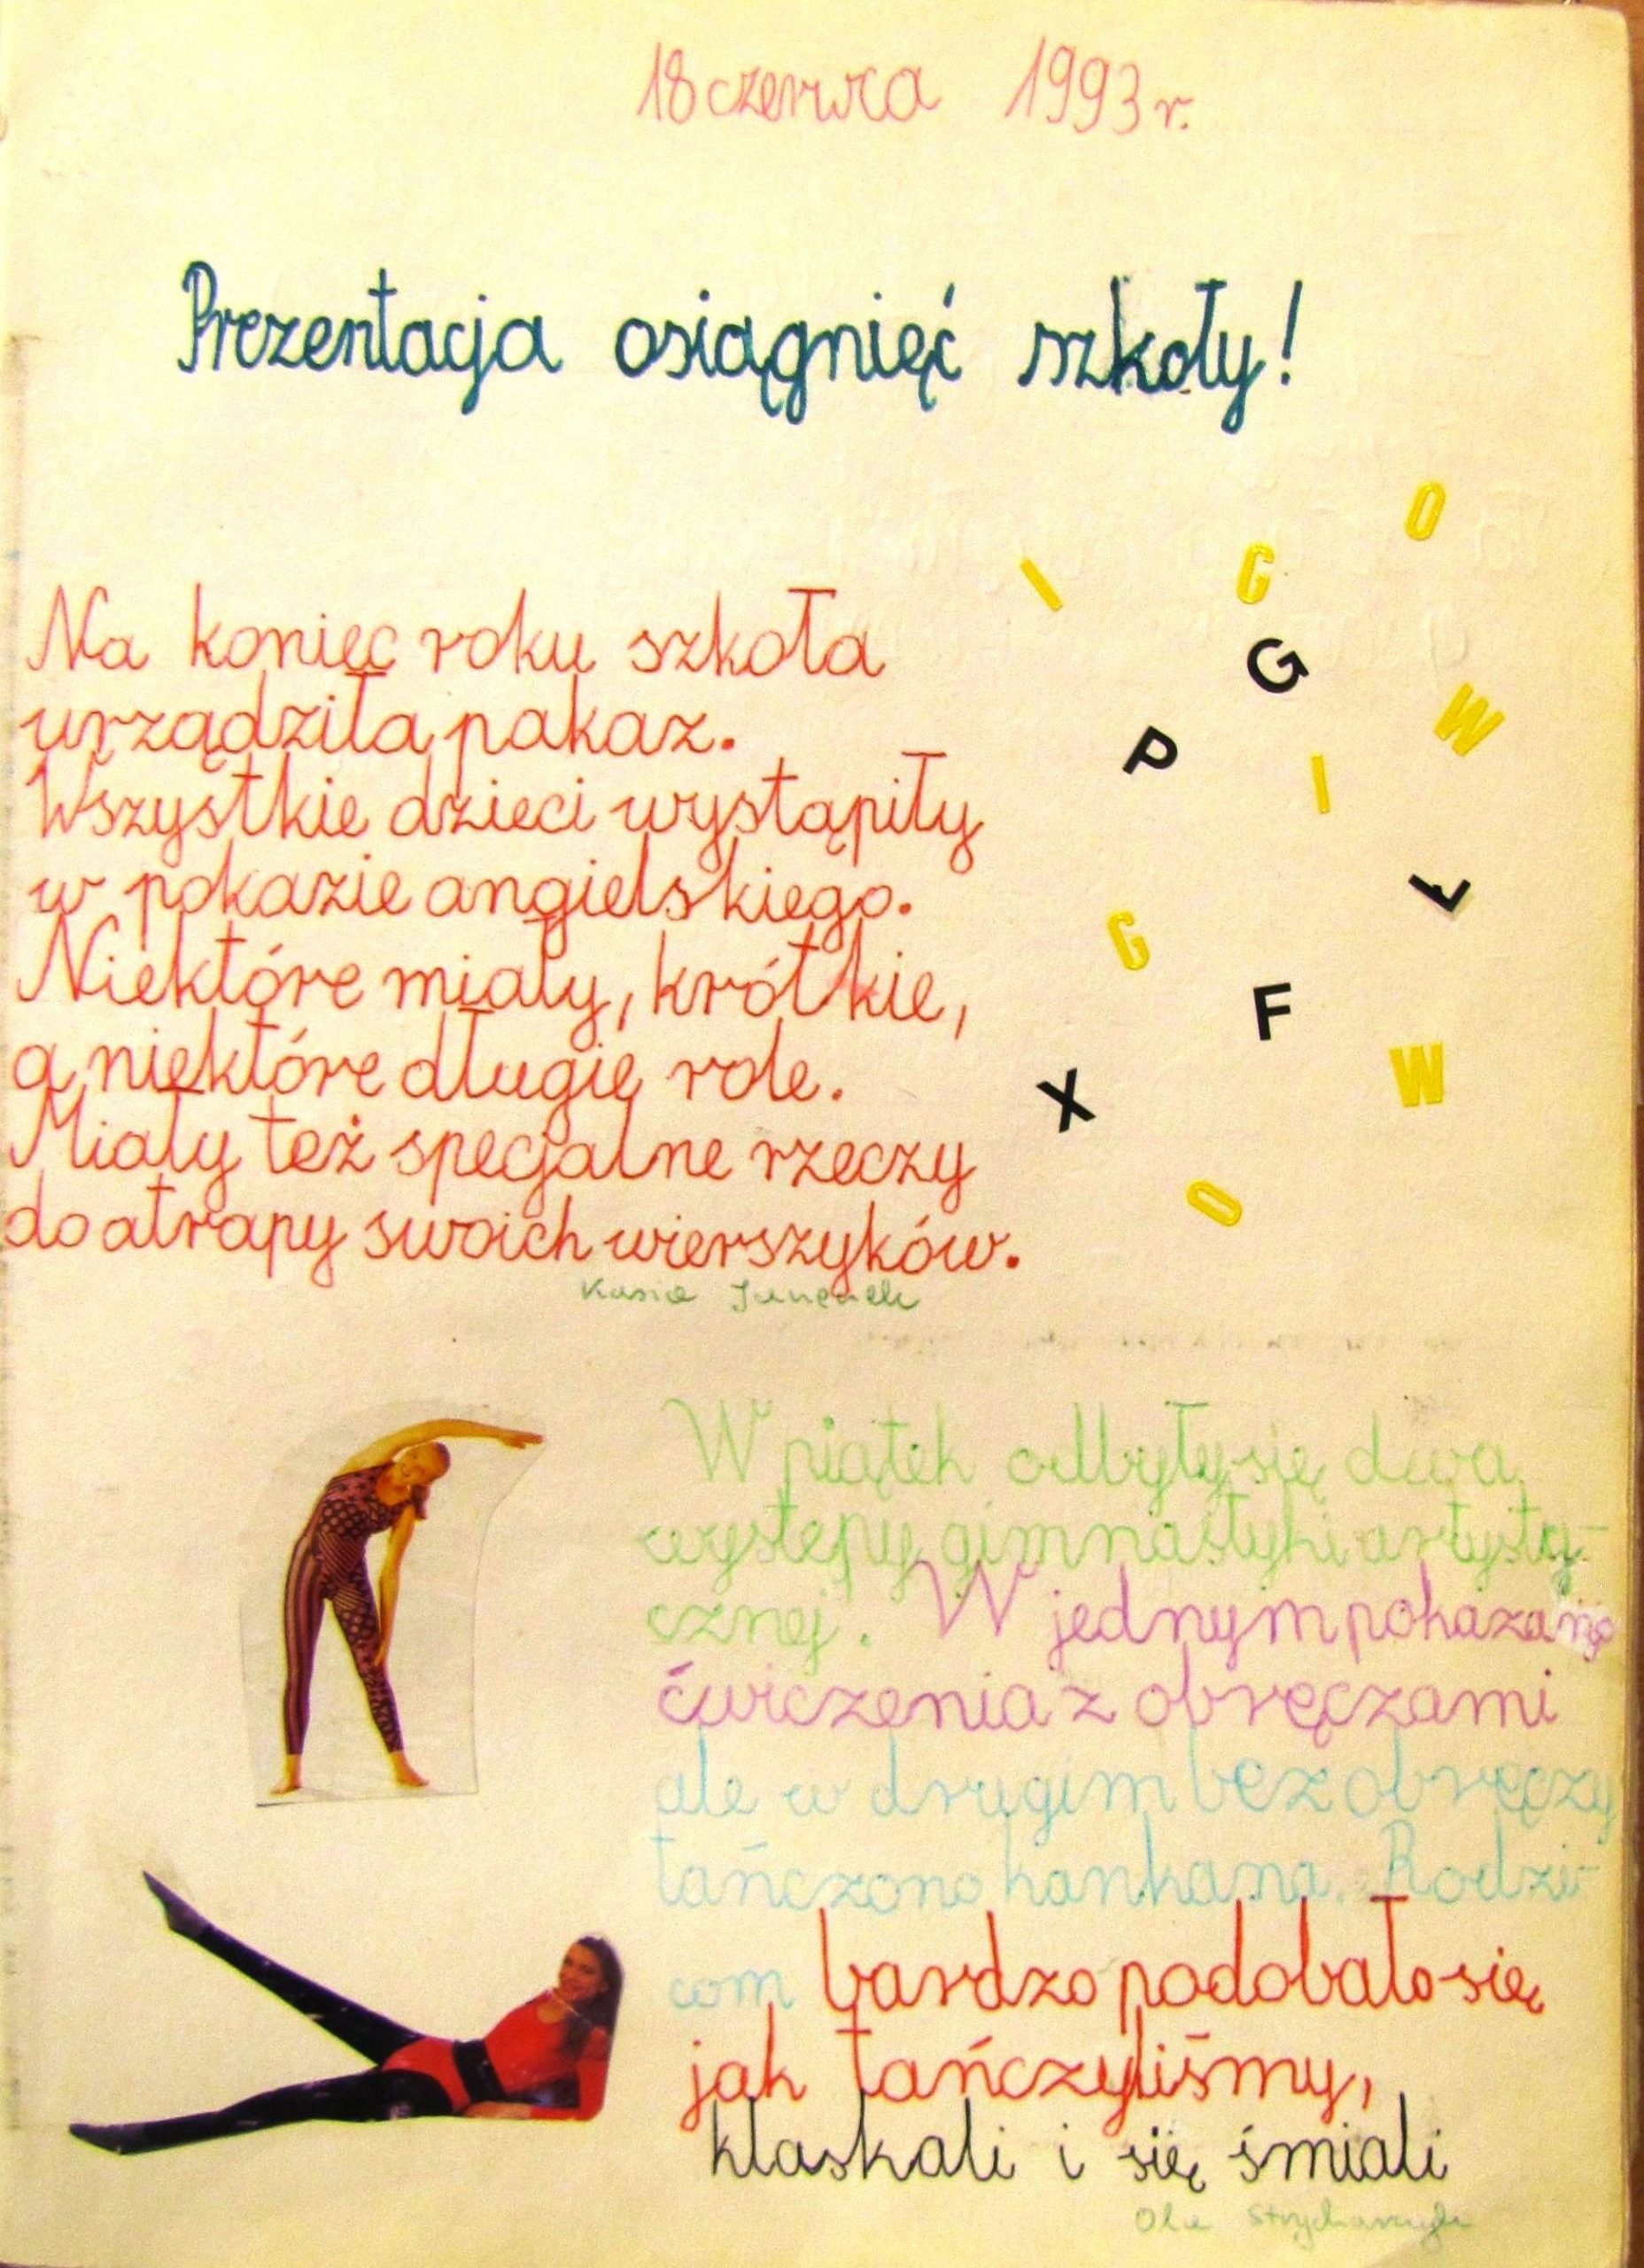 18 czerwca 1993 r.
Prezentacja osiągnięć szkoły!
O
I G
G
W
P
I
Ł
G
F
W
X
O
Na koniec roku szkoła
urządziła pakaz.
Wszystkie dzieci wystąpiły
w pokazie angielskiego.
Niektóre miały, krótkie,
a niektóre długie role.
Miały też specjalne rzeczy
do atrapy swoich wierszyków.
Kasia
W piątek odbyły się dwa
występy gimnastyki artysty-
cznej. W jednym pokazano
ćwiczenia z obręczami
ale w drugim bez obręczy
tańczono kankana. Rodzi-
com bardzo podobało się
jak tańczyliśmy,
klaskali i się śmiali
Ola